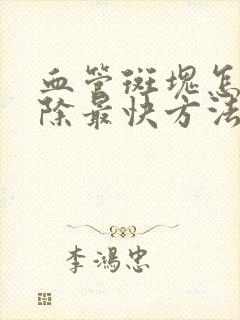 血管斑块怎
除最快方法
李鸿忠